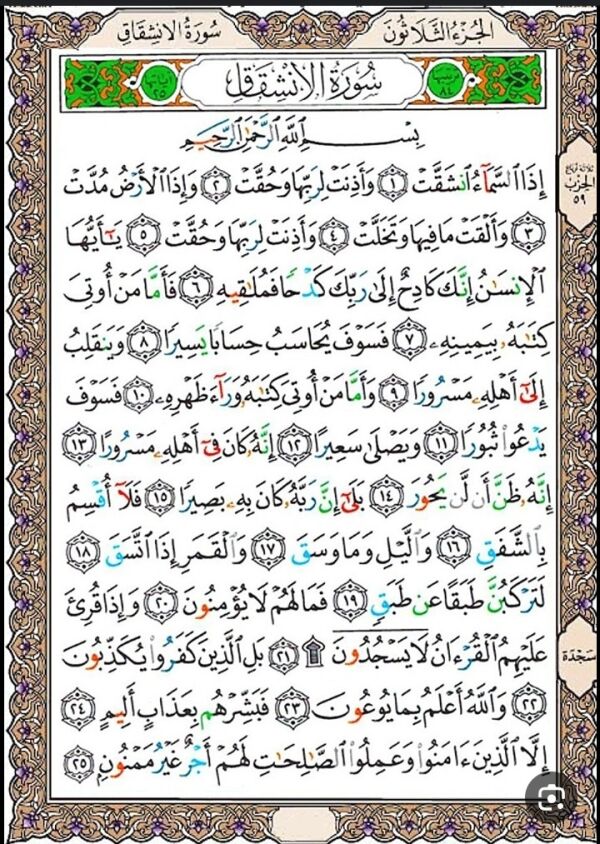 سُورَةُ الانشِقَاقِ
الجُزءُ الثَّلَاثُونَ
آيَاتُهَا ٢٥
سُورَةُ الِانْشِقَاقِ
تَرْتِيبُهَا ٨٤
بِسْمِ اللَّهِ الرَّحْمَٰنِ الرَّحِيمِ
إِذَا السَّمَآءُ انشَقَّتْ ١ وَأَذِنَتْ لِرَبِّهَا وَحُقَّتْ ٢ وَإِذَا الْأَرْضُ مُدَّتْ
٣ وَأَلْقَتْ مَا فِيهَا وَتَخَلَّتْ ٤ وَأَذِنَتْ لِرَبِّهَا وَحُقَّتْ ٥ يَٰٓأَيُّهَا
الْإِنسَٰنُ إِنَّكَ كَادِحٌ إِلَىٰ رَبِّكَ كَدْحًا فَمُلَٰقِيهِ ٦ فَأَمَّا مَنْ أُوتِىَ
كِتَٰبَهُۥ بِيَمِينِهِۦ ٧ فَسَوْفَ يُحَاسَبُ حِسَابًا يَسِيرًا ٨ وَيَنقَلِبُ
إِلَىٰٓ أَهْلِهِۦ مَسْرُورًا ٩ وَأَمَّا مَنْ أُوتِىَ كِتَٰبَهُۥ وَرَآءَ ظَهْرِهِۦ ١٠ فَسَوْفَ
يَدْعُوا۟ ثُبُورًا ١١ وَيَصْلَىٰ سَعِيرًا ١٢ إِنَّهُۥ كَانَ فِىٓ أَهْلِهِۦ مَسْرُورًا ١٣
إِنَّهُۥ ظَنَّ أَن لَّن يَحُورَ ١٤ بَلَىٰٓ إِنَّ رَبَّهُۥ كَانَ بِهِۦ بَصِيرًا ١٥ فَلَآ أُقْسِمُ
بِالشَّفَقِ ١٦ وَالَّيْلِ وَمَا وَسَقَ ١٧ وَالْقَمَرِ إِذَا اتَّسَقَ ١٨
لَتَرْكَبُنَّ طَبَقًا عَن طَبَقٍ ١٩ فَمَا لَهُمْ لَا يُؤْمِنُونَ ٢٠ وَإِذَا قُرِئَ
عَلَيْهِمُ الْقُرْءَانُ لَا يَسْجُدُونَ ۩ ٢١ بَلِ الَّذِينَ كَفَرُوا۟ يُكَذِّبُونَ
٢٢ وَاللَّهُ أَعْلَمُ بِمَا يُوعُونَ ٢٣ فَبَشِّرْهُم بِعَذَابٍ أَلِيمٍ ٢٤
إِلَّا الَّذِينَ ءَامَنُوا۟ وَعَمِلُوا۟ الصَّٰلِحَٰتِ لَهُمْ أَجْرٌ غَيْرُ مَمْنُونٍ ٢٥
الحِزْب
٥٩
سَجْدَة